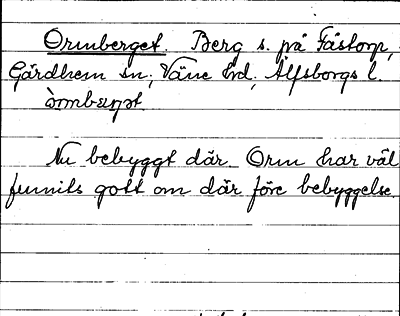 Ormberget. Berg s. på Fästorp,
Gärdhem sn, Väne hd, Älfsborgs l.
Nu bebyggt där. Orm har väl
funnits gott om där före bebyggelse.